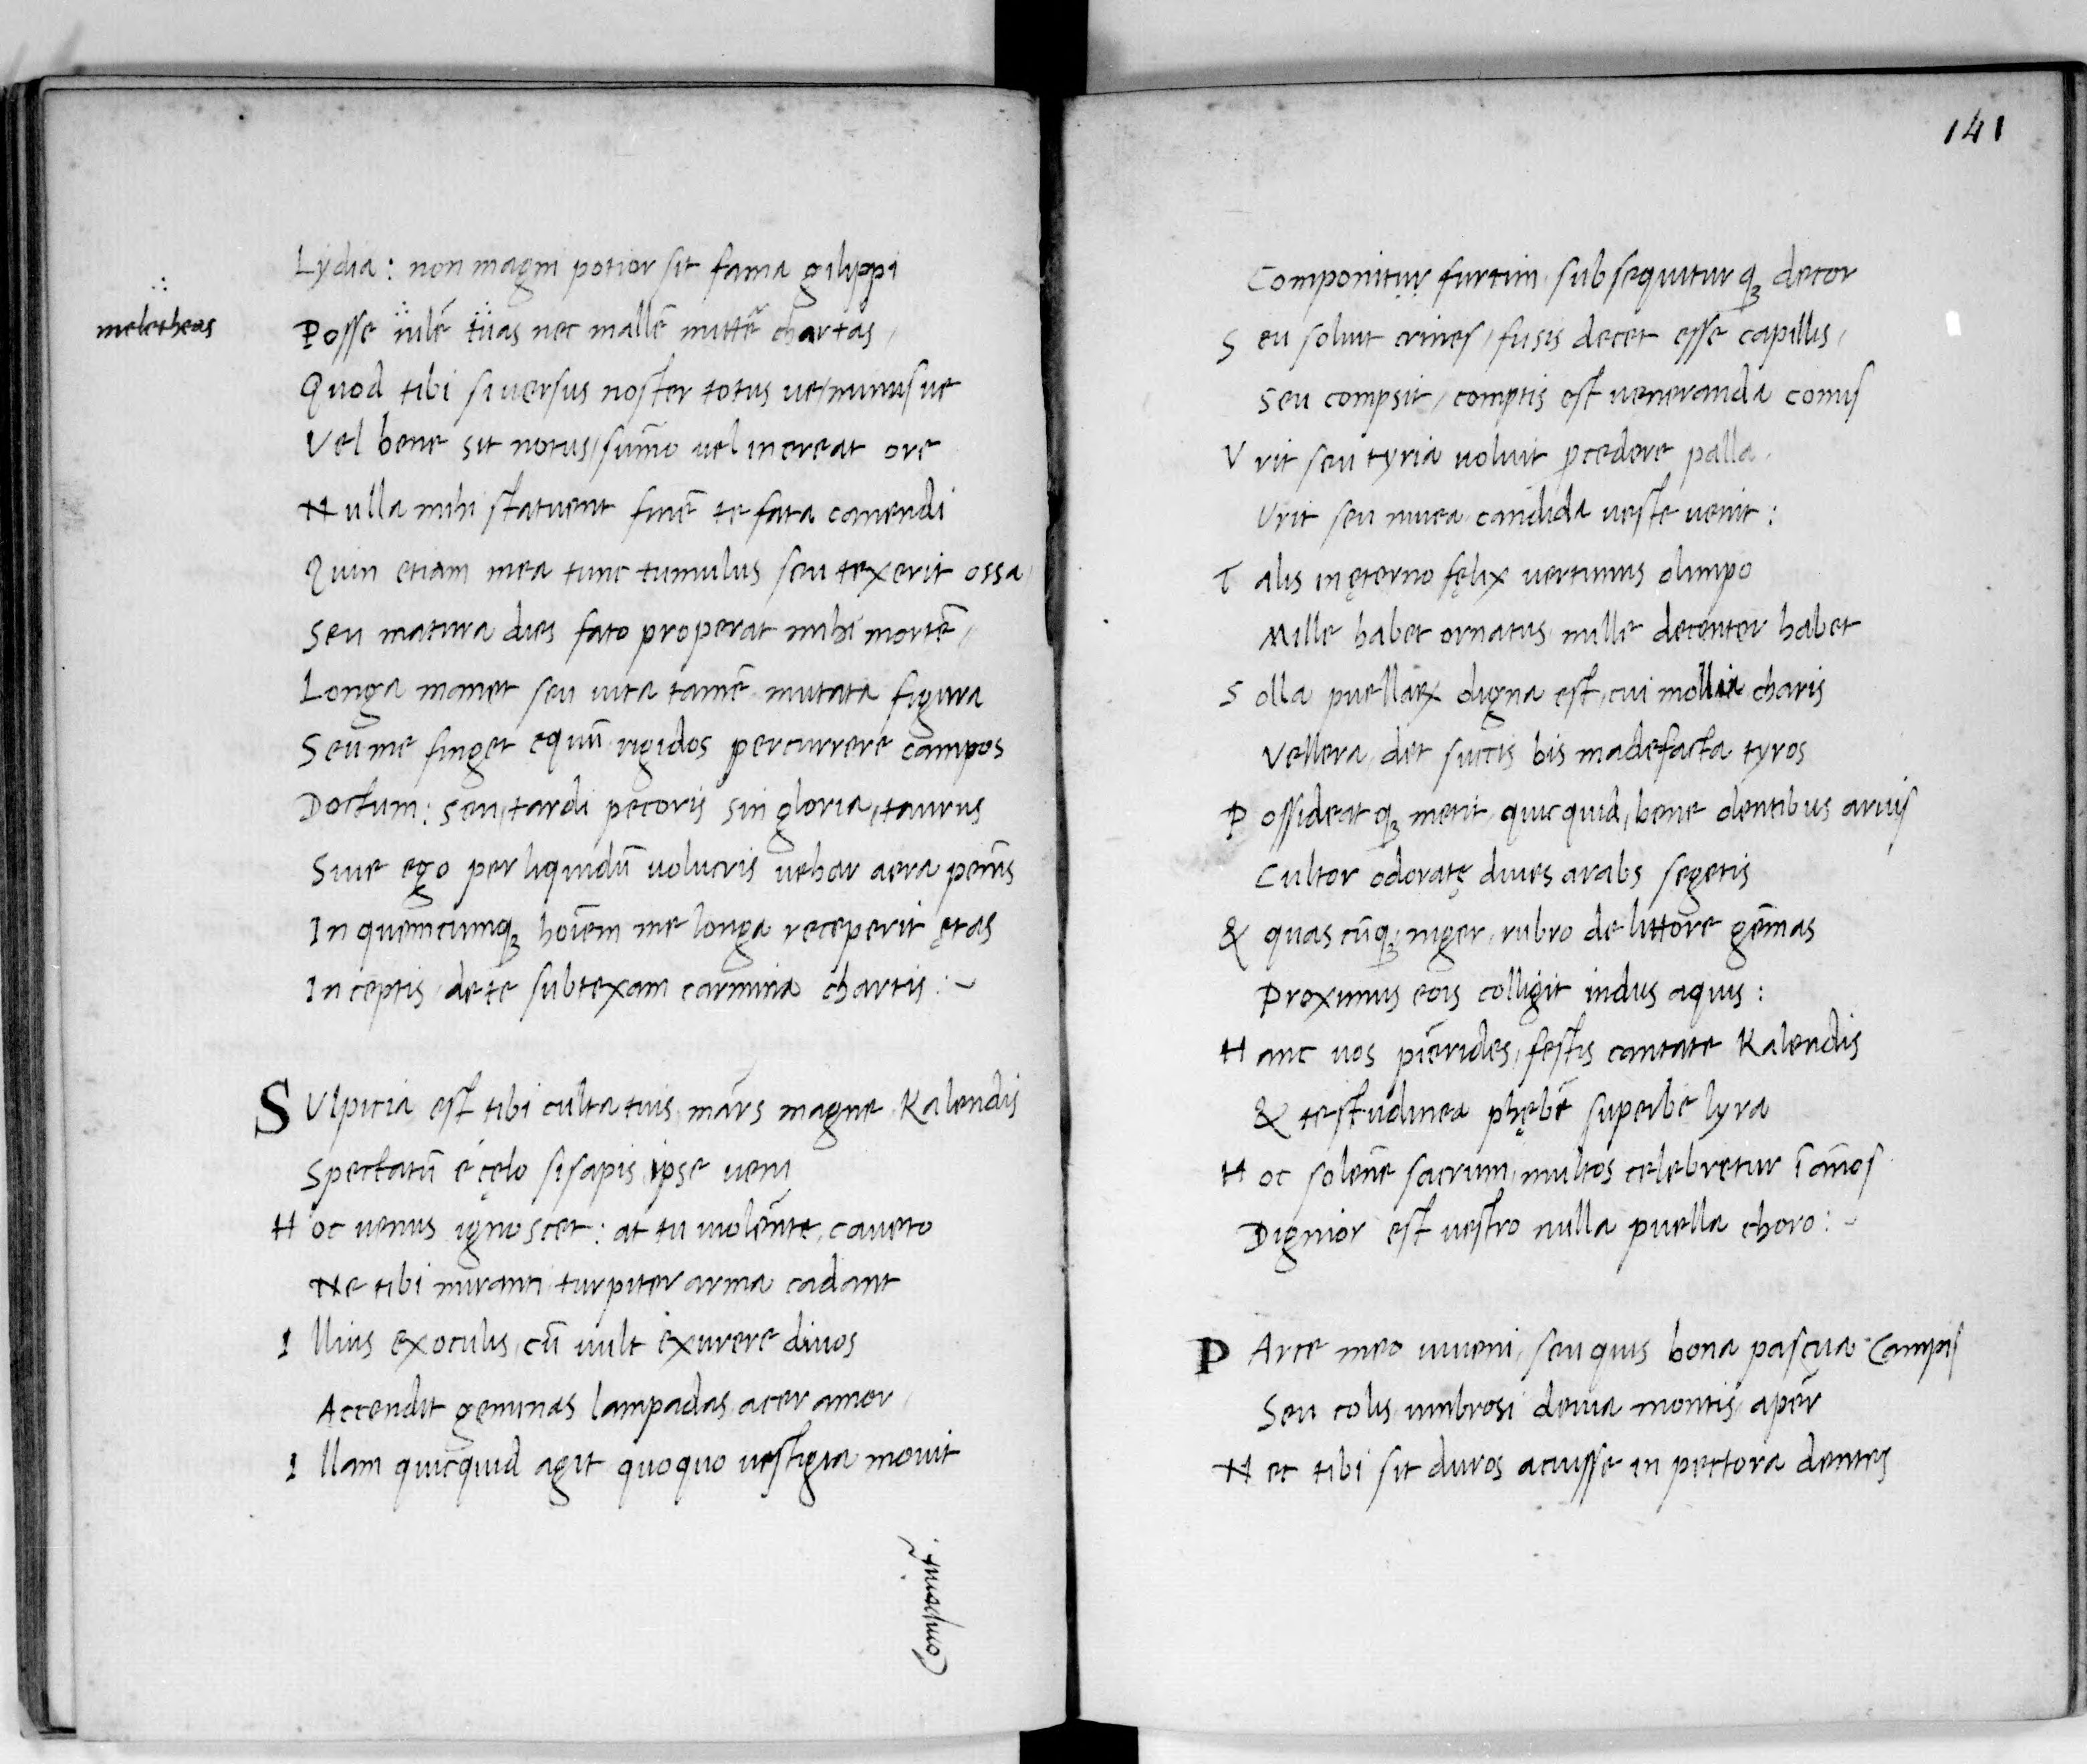 Lydia: non magni potior sit fama gilippi
meletheas
Posse iulẽ tuas nec mallẽ mittẽ chartas/
Quod tibi si uersus noster totus ue/minus ue
Vel bene sit notus/sum̃o uel inereat ore
Nulla mihi statuent finẽ te fata canendi
Quin etiam mea tunc tumulus seu texerit ossa/
Seu matura dies fato properat mihi mortẽ/
Longa manet seu uita tamẽ mutata figura
Seu me finget equũ rigidos percurrere campos
Doctum: seu/tardi pecoris sin gloria/taurus
Siue ego per liquidũ uolucris uehar aera pen̄is
In quemcumq; hoĩem me longa receperit ętas
Inceptis de te subtexam carmina chartis:~
SVlpitia est tibi culta tuis/mars magne Kalendis
Spectatũ é cęlo si sapis ipse ueni
Hoc uenus ignoscet: at tu uiolente/caueto
Ne tibi miranti turpiter arma cadant
Illius ex oculis/cũ uult exurere diuos
Accendit geminas lampadas acer amor/
Illam quicquid agit quoquo uestigia mouit
Componit̃.
141
Componitur furtim subsequitur q; decor
Seu soluit crines/fusis decet esse capillis/
Seu compsit/comptis est ueneranda comis
Vrit seu tyria uoluit p̱cedere palla.
Vrit seu niuea candida ueste uenit:
Talis in ęterno fęlix uertunnus olimpo
Mille habet ornatus mille decenter habet
Solla puellaꝝ digna est/cui mollia charis
Vellera det succis bis madefacta tyros
Possideat q; metit quicquid/bene olentibus aruis
Cultor odoratę diues arabs segetis
& quas cũq; niger/rubro de littore gem̃as
Proximus eois colligit indus aquis:
Hanc uos pierides/festis cantate Kalendis
& testudinea phębé superbe lyra
Hoc solẽne sacrum/multos celebretur ĩ an̄os
Dignior est uestro nulla puella choro:~
PArce meo iuueni/seu quis bona pascua campis
Seu colis umbrosi deuia montis aper
Nec tibi sit duros acuisse in pectora dentes